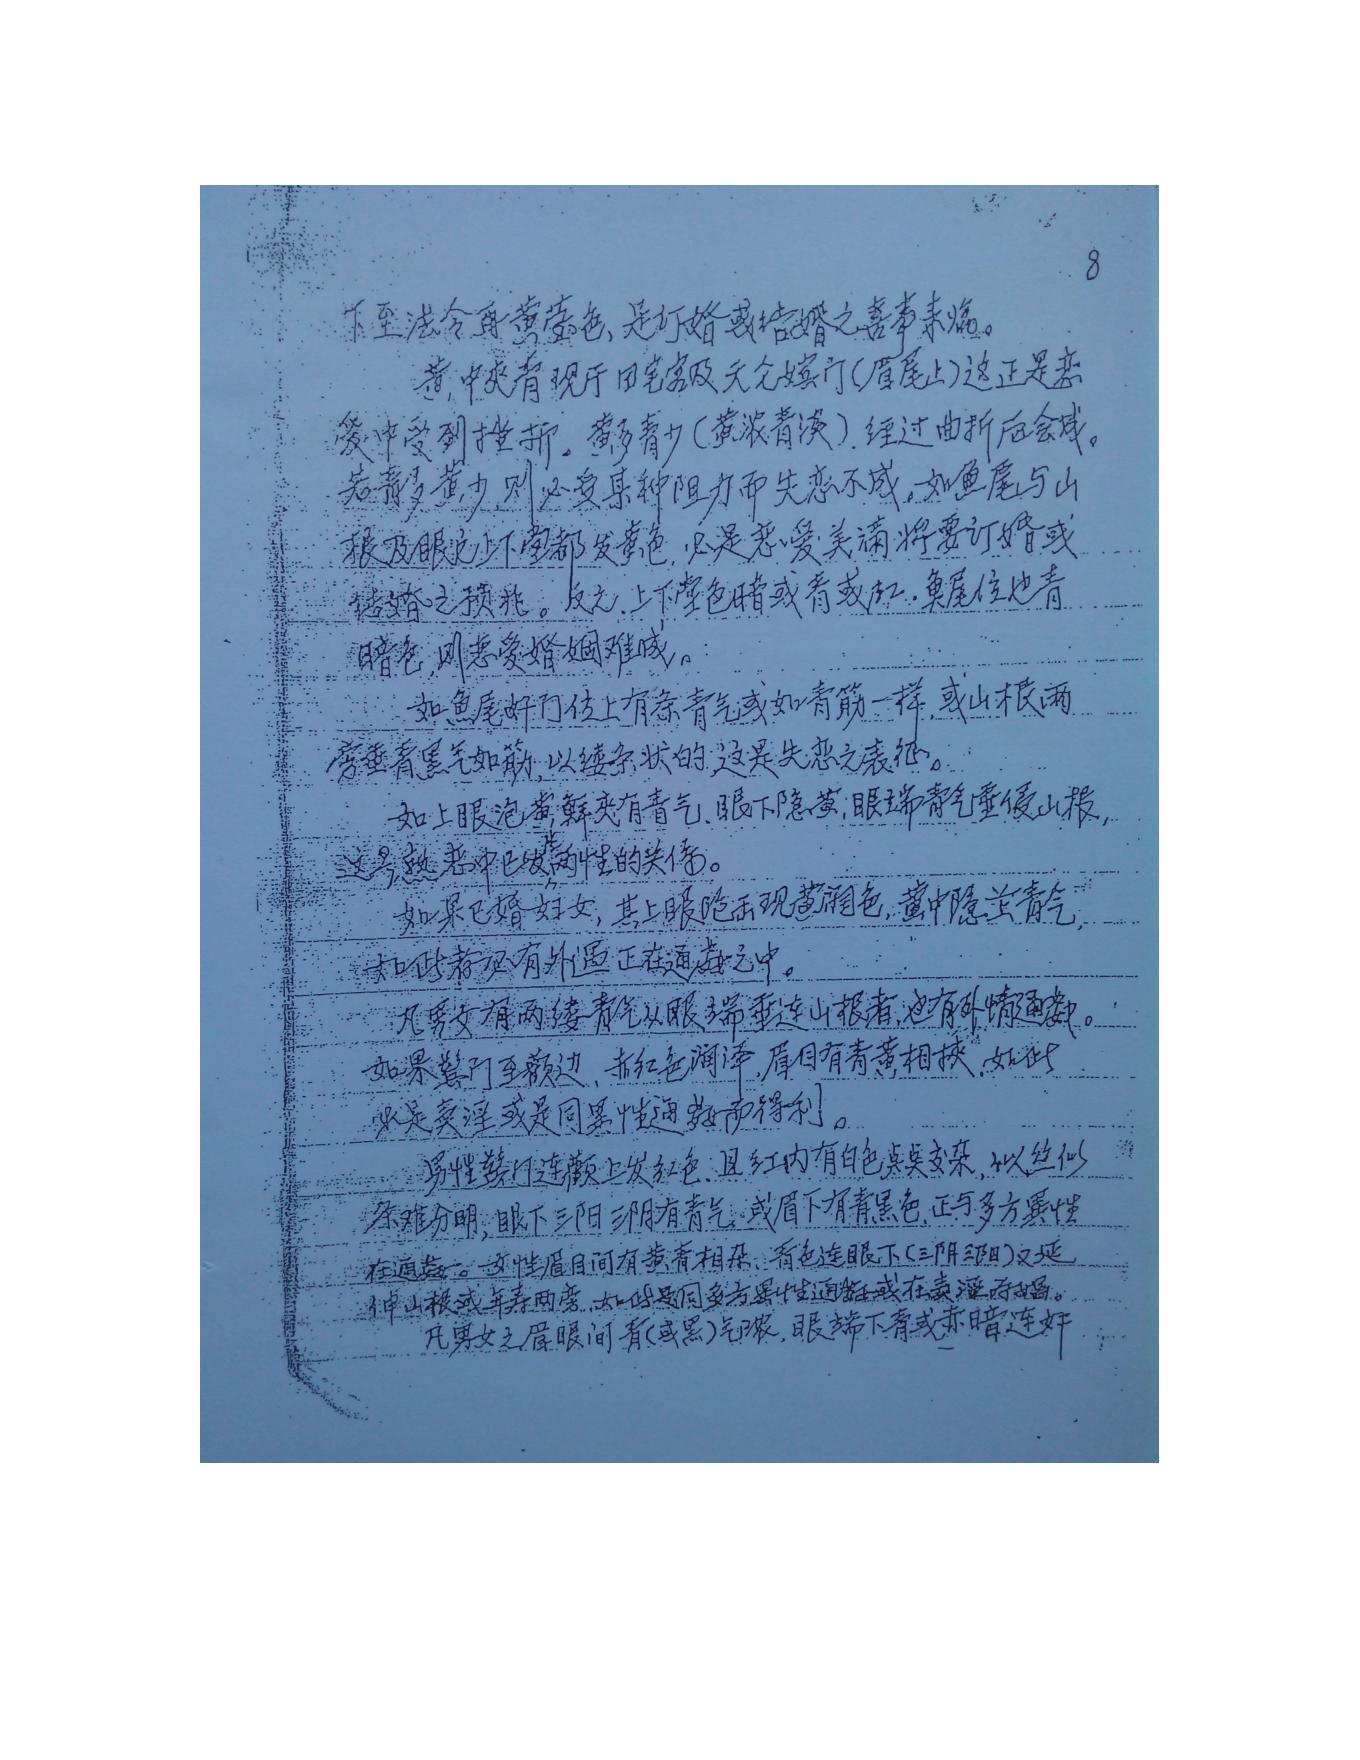 8
下至法令再黄莹色,是订婚或结婚之喜事来临。
黄中夹青现于田宅宫及天仓嫔门(眉尾上)这正是恋
爱中受到挫折。黄多青少(黄浓青淡).经过曲折后会成。
若青多黄少则必受某种阻力而失恋不成。如鱼尾与山
根及眼之上下堂都发黄色,必是恋爱美满将要订婚或
结婚之预兆。反之.上下堂色暗或青或红.鱼尾位也青
暗色,则恋爱婚姻难成。
如鱼尾奸门位上有条青气或如青筋一样,或山根两
旁垂青黑气如筋,以缕条状的,这是失恋之表征。
如上眼泡黄鲜夹有青气.眼下隐黄,眼端青气垂侵山根,
这是热恋中已发生两性的关係。
如果已婚妇女,其上眼隐而现黄润色,黄中隐泣青气,
如此者必有外遇正在通姦之中。
凡男女有两缕青气从眼端垂连山根者,也有外情通姦。
如果鬓门至颧边、赤红色润泽,眉目有青黄相挟.如此
必是卖淫或是同異性通姦而得利。
男性鬓门连颧上发红色.且红内有白色点点交杂,似丝似
条难分明,眼下三阳三阴有青气.或眉下有青黑色.正与多方異性
在通姦。女性眉目间有黄青相杂、青色连眼下(三阴三阳)又延
伸山根或年寿两旁.如此是同多方異性通姦或在卖淫
凡男女之眉眼间青(或黑)气浓,眼端下青或赤暗连奸